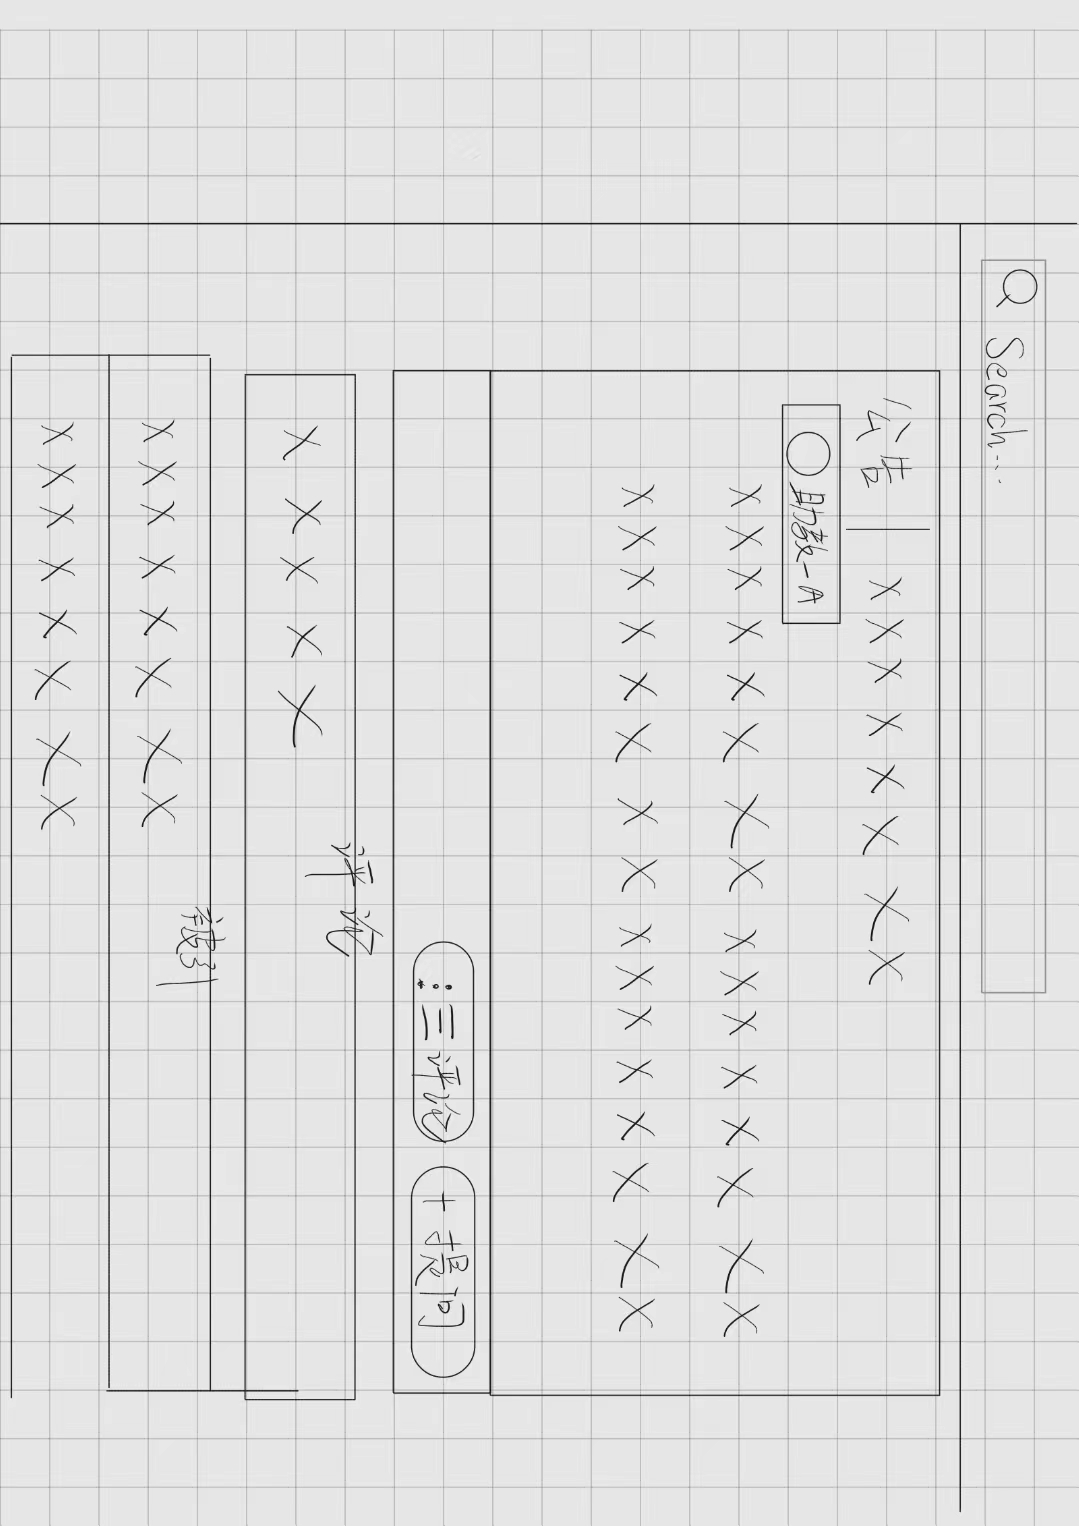 Search...
公告 | XXXXXXXX
助教-A
XXXXXXXXXXXXXXXX
XXXXXXXXXXXXXXXX
评论 + 提问
XXXXX
评论
XXXXXXXX
XXXXXXXX